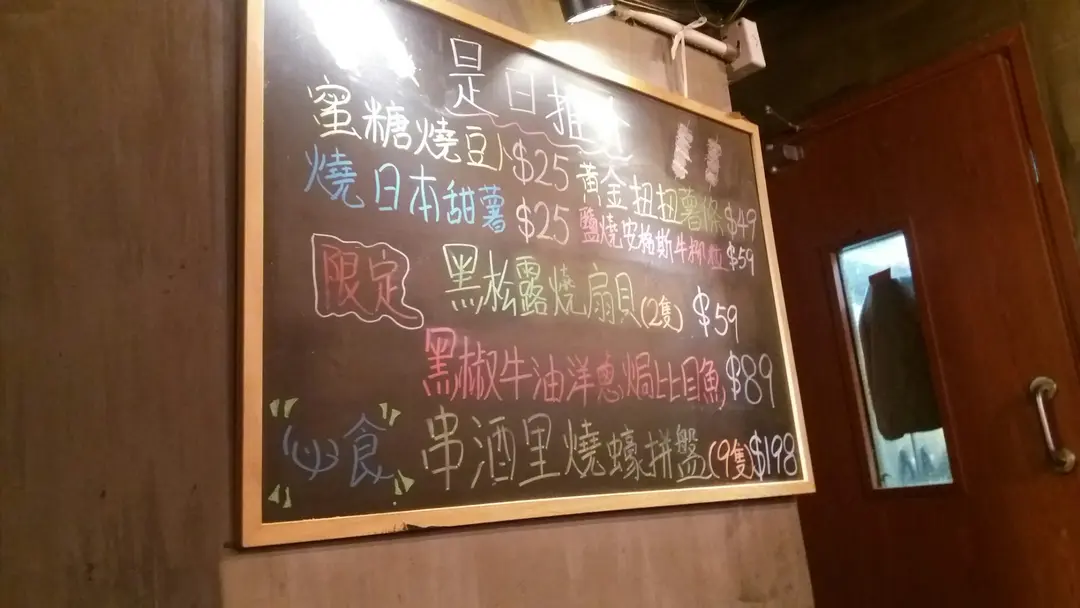 是日推介
蜜糖燒豆卜$25
黃金扭扭薯條$49
燒日本甜薯$25
鹽燒安格斯牛柳粒$59
限定
黑松露燒扇貝(2隻) $59
黑椒牛油洋蔥焗比目魚$89
必食
串酒里燒蠔拼盤(9隻)$198